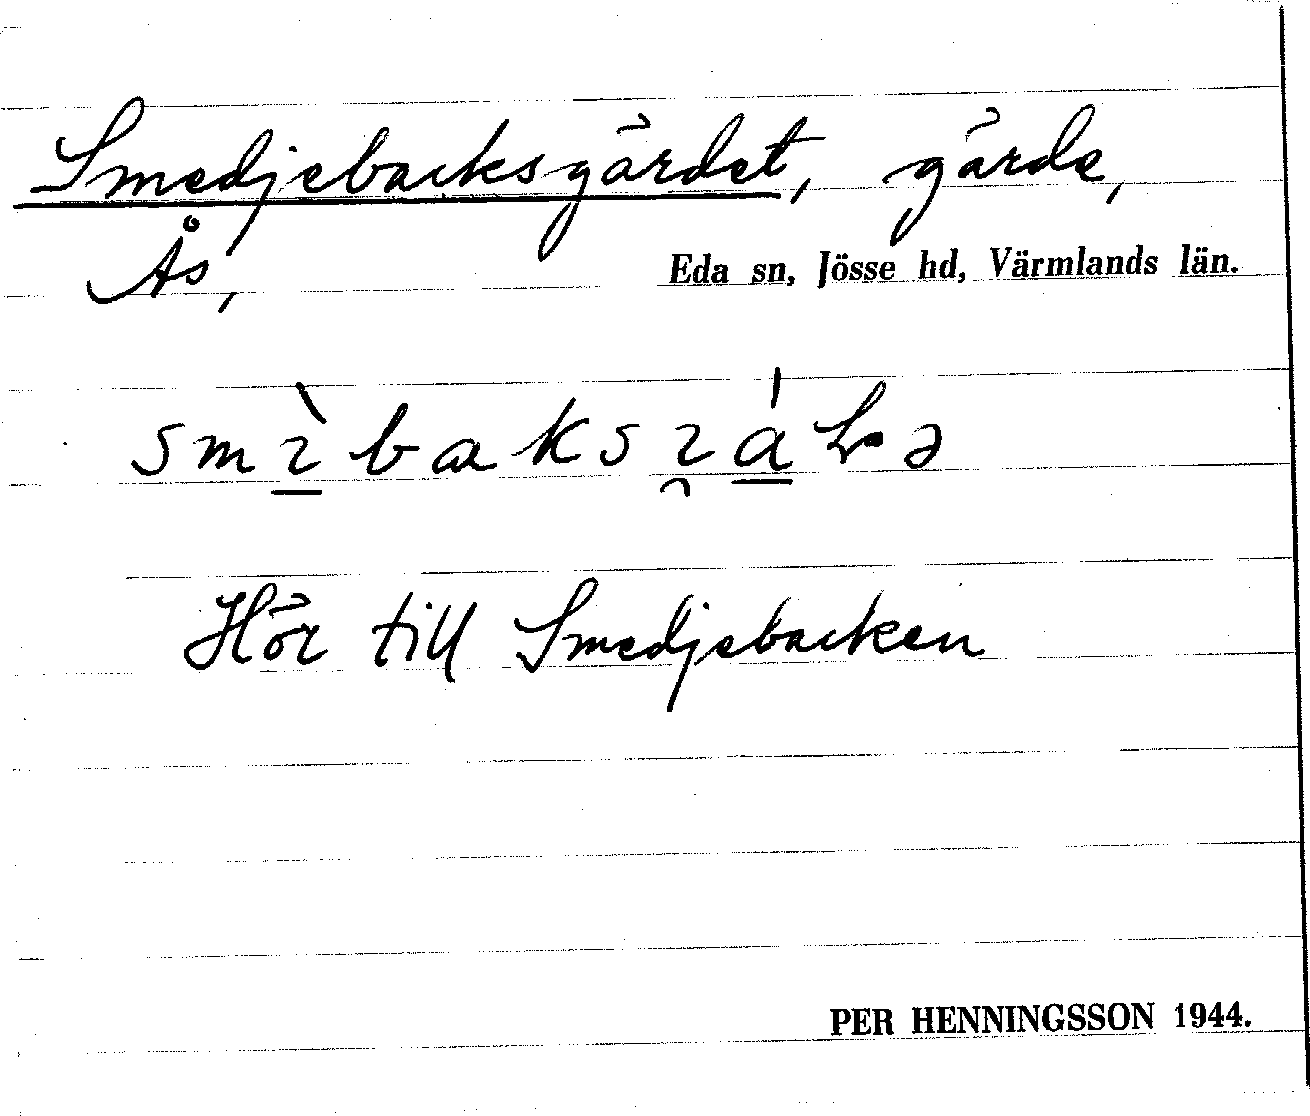 Smedjebacksgärdet, gärde,
Ås,
Eda sn, Jösse hd, Värmlands län.
Hör till Smedjebacken
PER HENNINGSSON 1944.